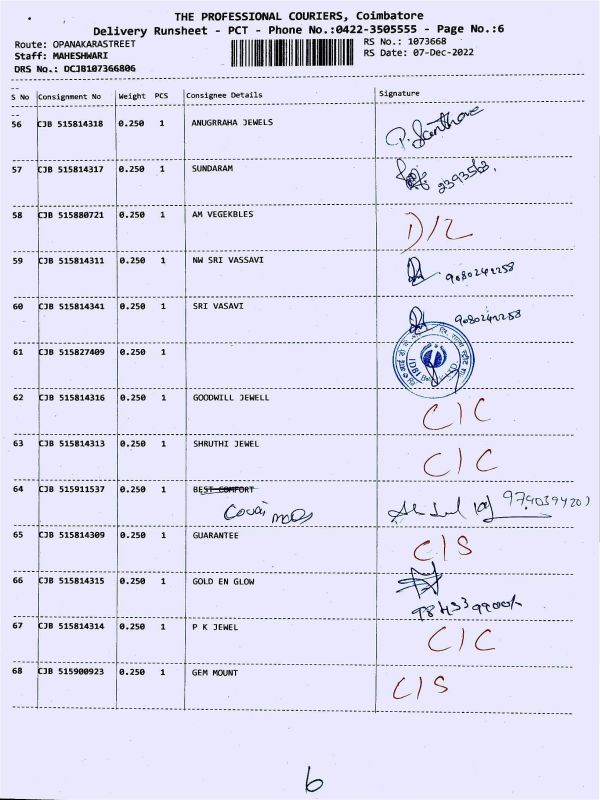 THE PROFESSIONAL COURIERS, Coimbatore
Delivery Runsheet - PCT - Phone No.:0422-3505555 - Page No.:6
Route: OPANAKARASTREET RS No.: 1073668
Staff: MAHESHWARI RS Date: 07-Dec-2022
DRS No.: DCJB107366806
S No Consignment No Weight PCS Consignee Details Signature
56 CJB 515814318 0.250 1 ANUGRRAHA JEWELS
57 CJB 515814317 0.250 1 SUNDARAM
58 CJB 515880721 0.250 1 AM VEGEKBLES D/L
59 CJB 515814311 0.250 1 NW SRI VASSAVI 9080242258
60 CJB 515814341 0.250 1 SRI VASAVI 9080242258
61 CJB 515827409 0.250 1 IDBI
62 CJB 515814316 0.250 1 GOODWILL JEWELL C/C
63 CJB 515814313 0.250 1 SHRUTHI JEWEL C/C
64 CJB 515911537 0.250 1 BEST COMFORT
65 CJB 515814309 0.250 1 GUARANTEE C/S
66 CJB 515814315 0.250 1 GOLD EN GLOW
67 CJB 515814314 0.250 1 P K JEWEL C/C
68 CJB 515900923 0.250 1 GEM MOUNT C/S
6